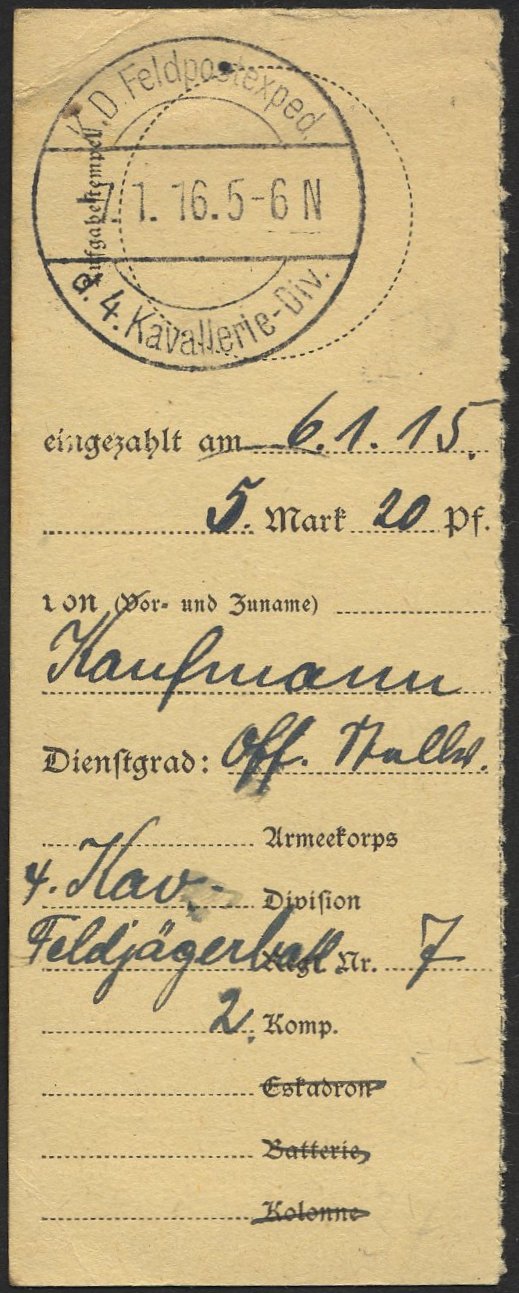 K.D. Feldpostexped.
Aufgabestempel
7. 1. 16. 5-6 N
d. 4. Kavallerie-Div.
eingezahlt am 6. 1. 15.
5. Mark 20 Pf.
von (Vor- und Zuname)
Kaufmann
Dienstgrad: Off. Stellv.
Armeekorps
4. Kav. Division
Feldjägerbatl. Regt. Nr. 7
2. Komp.
Eskadron
Batterie
Kolonne